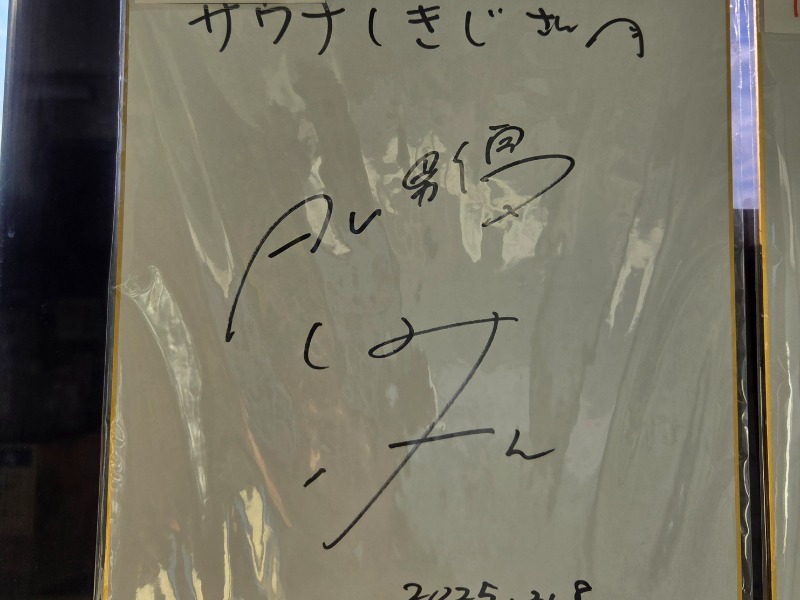 サウナしきじさん江
男優
しみけん
2025.2.8